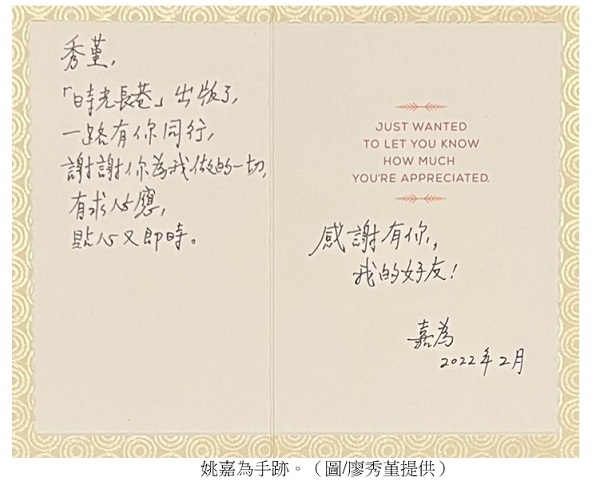 秀堇,
「時光長巷」出版了,
一路有你同行,
謝謝你為我做的一切,
有求必應,
貼心又即時。
JUST WANTED
TO LET YOU KNOW
HOW MUCH
YOU'RE APPRECIATED.
感謝有你,
我的好友!
嘉為
2022年2月
姚嘉為手跡。（圖/廖秀堇提供）